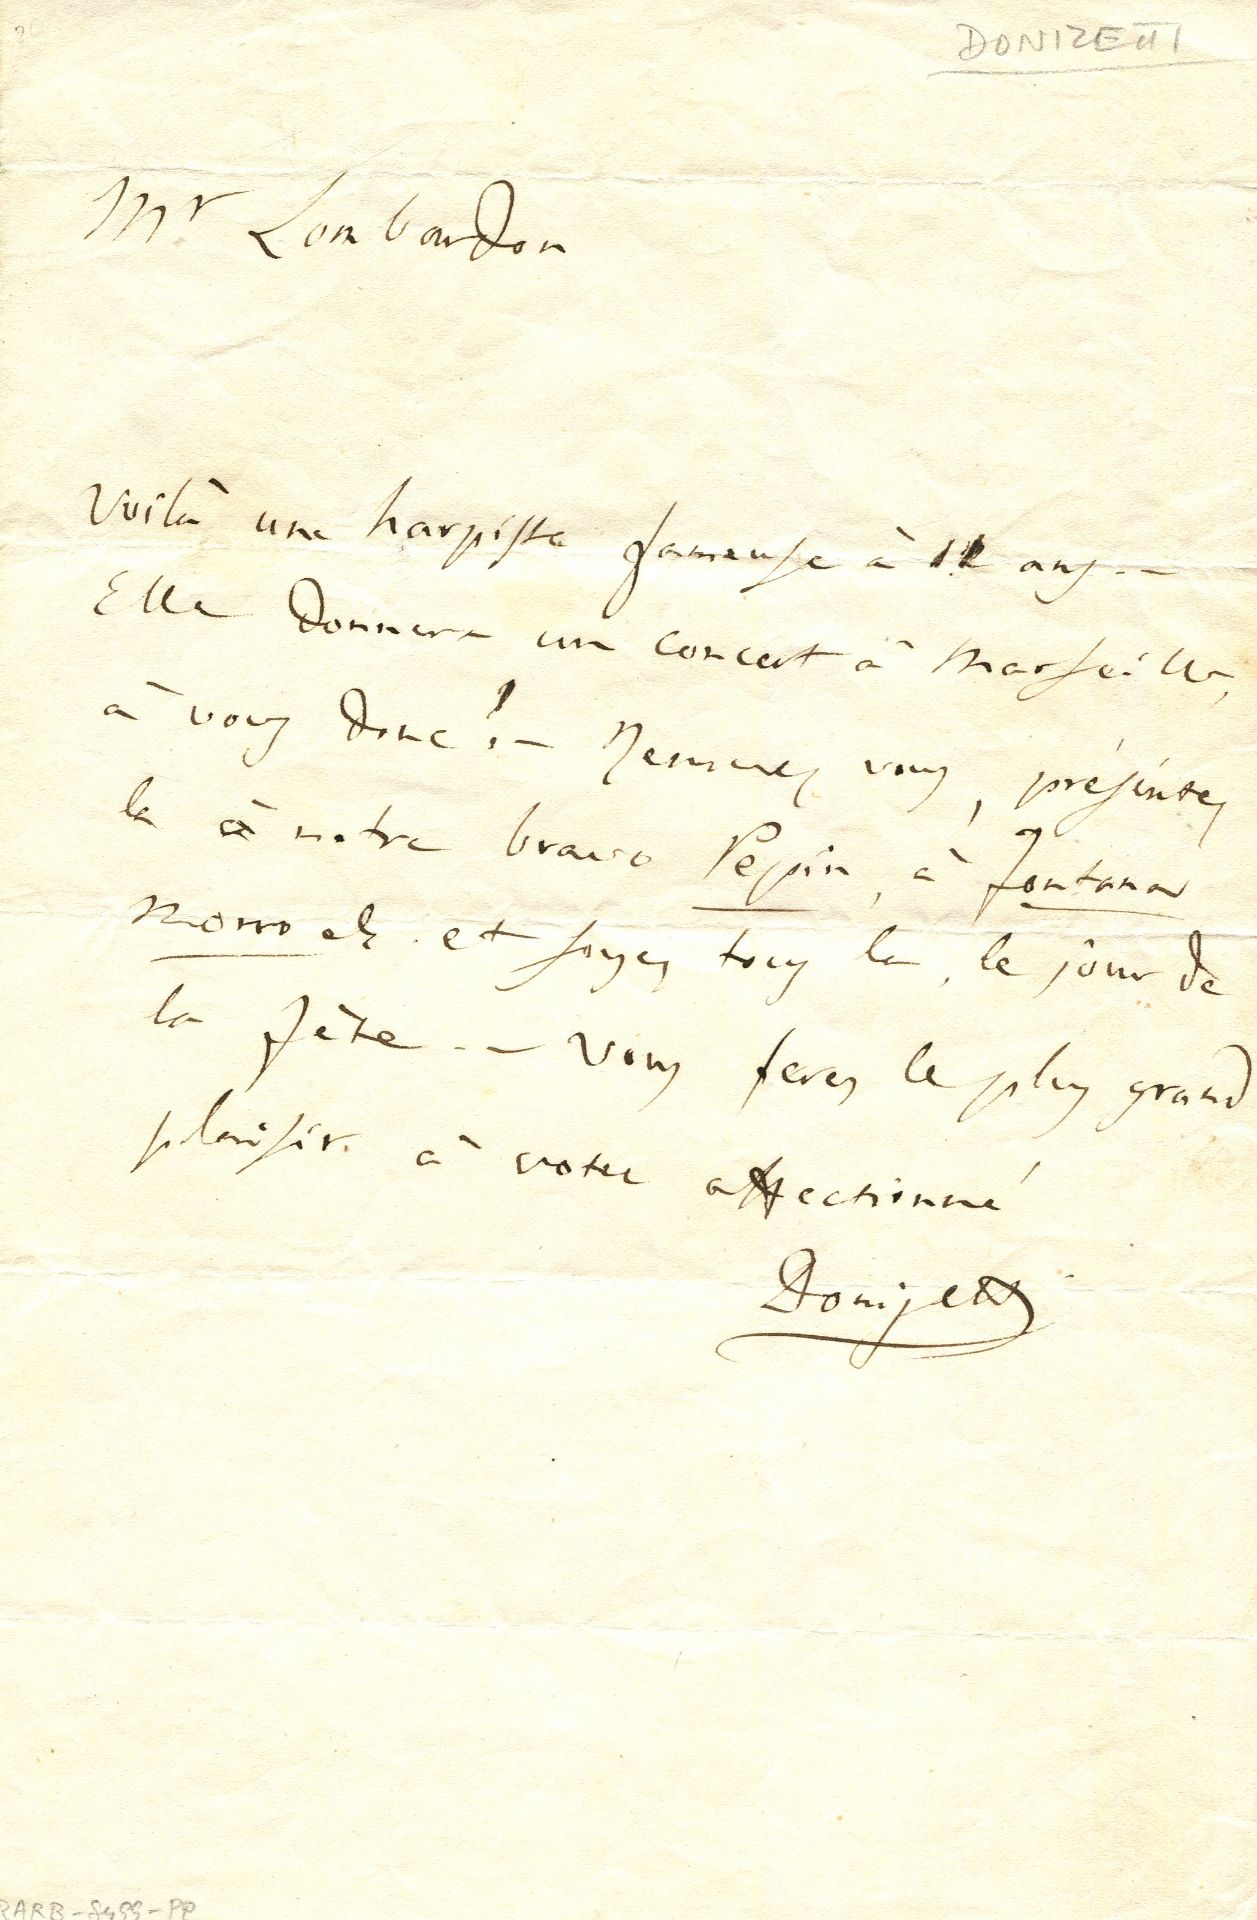 DONIZETTI
Mr Lombardon
Voilà une harpiste fameuse à 12 ans. —
Elle donnera un concert à Marseille,
à vous donc! — Remuez vous, présentez
la à notre bravo Pepin, à Fontana
Morro et soyez tous la, le jour de
la fête. — Vous ferez le plus grand
plaisir à votre affectionné
Donizetti
RARB-8499-PP